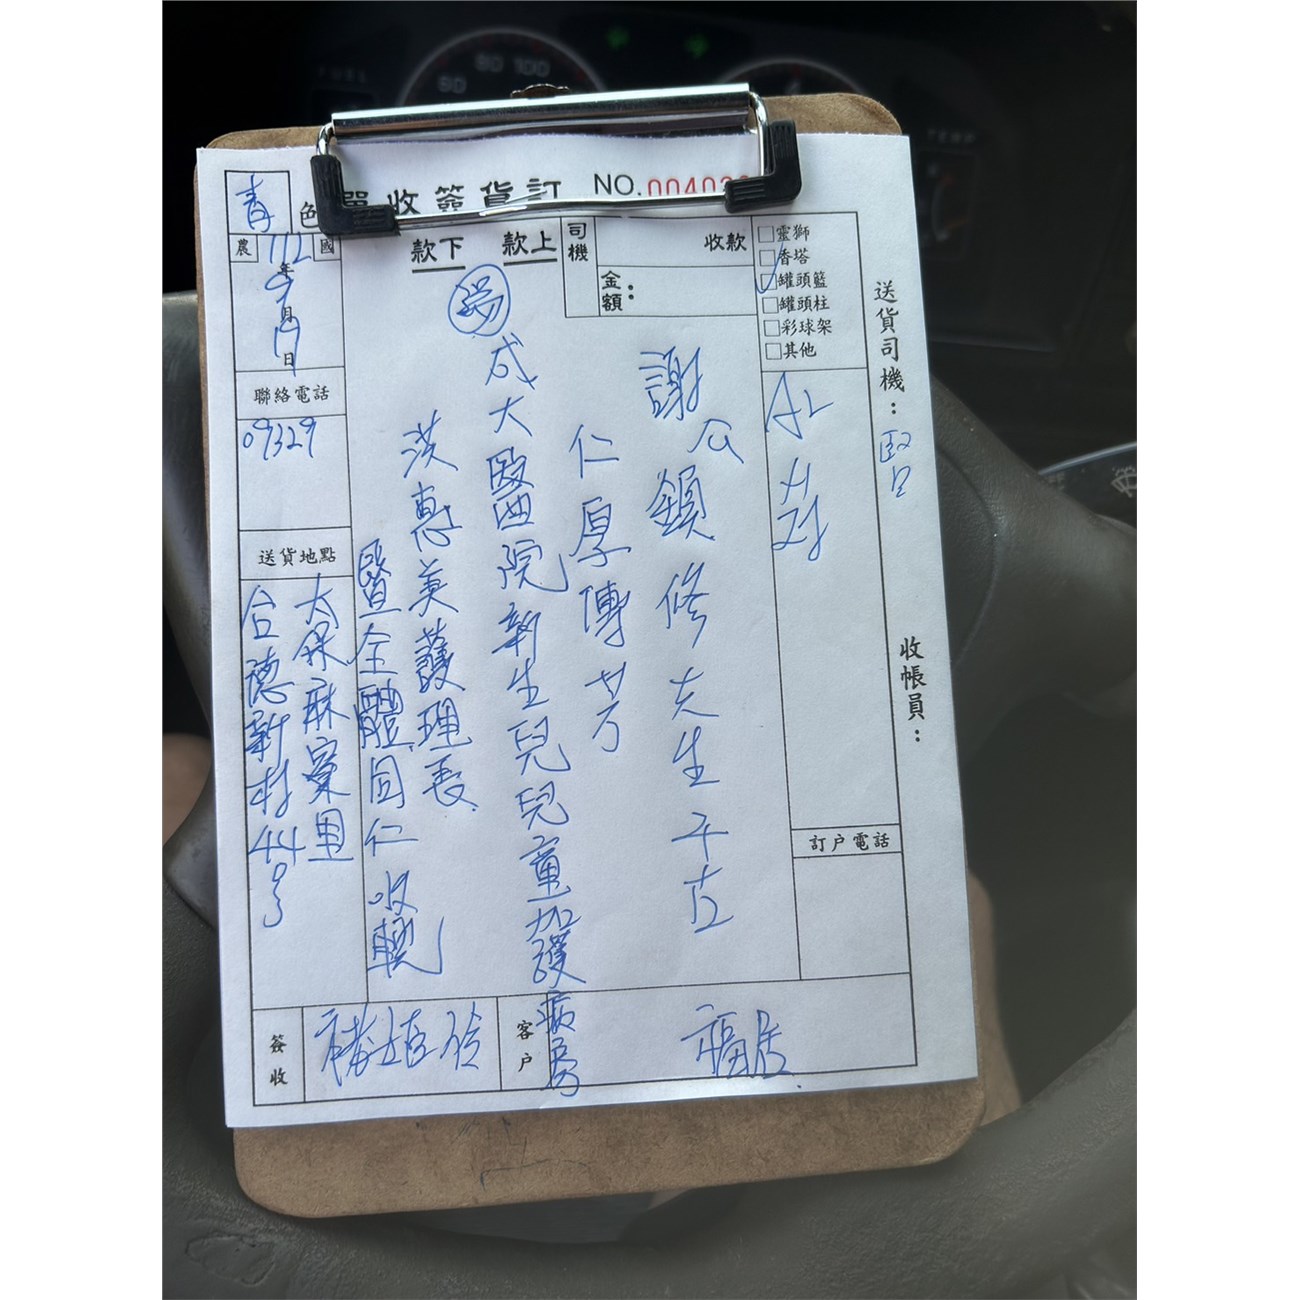 訂貨簽收單
NO.
青
色
農
國
112年
9月
19日
上款
下款
司機
收款
金額：
□靈獅
□香塔
□罐頭籃
□罐頭柱
□彩球架
□其他
送貨司機：
收帳員：
謝公
鎮修先生千古
仁厚傳芳
成大醫院新生兒兒童加護病房
洪惠美護理長
暨全體同仁
聯絡電話
09329
送貨地點
太保麻寮里
合德新村44號
訂戶電話
簽收
客戶
福居